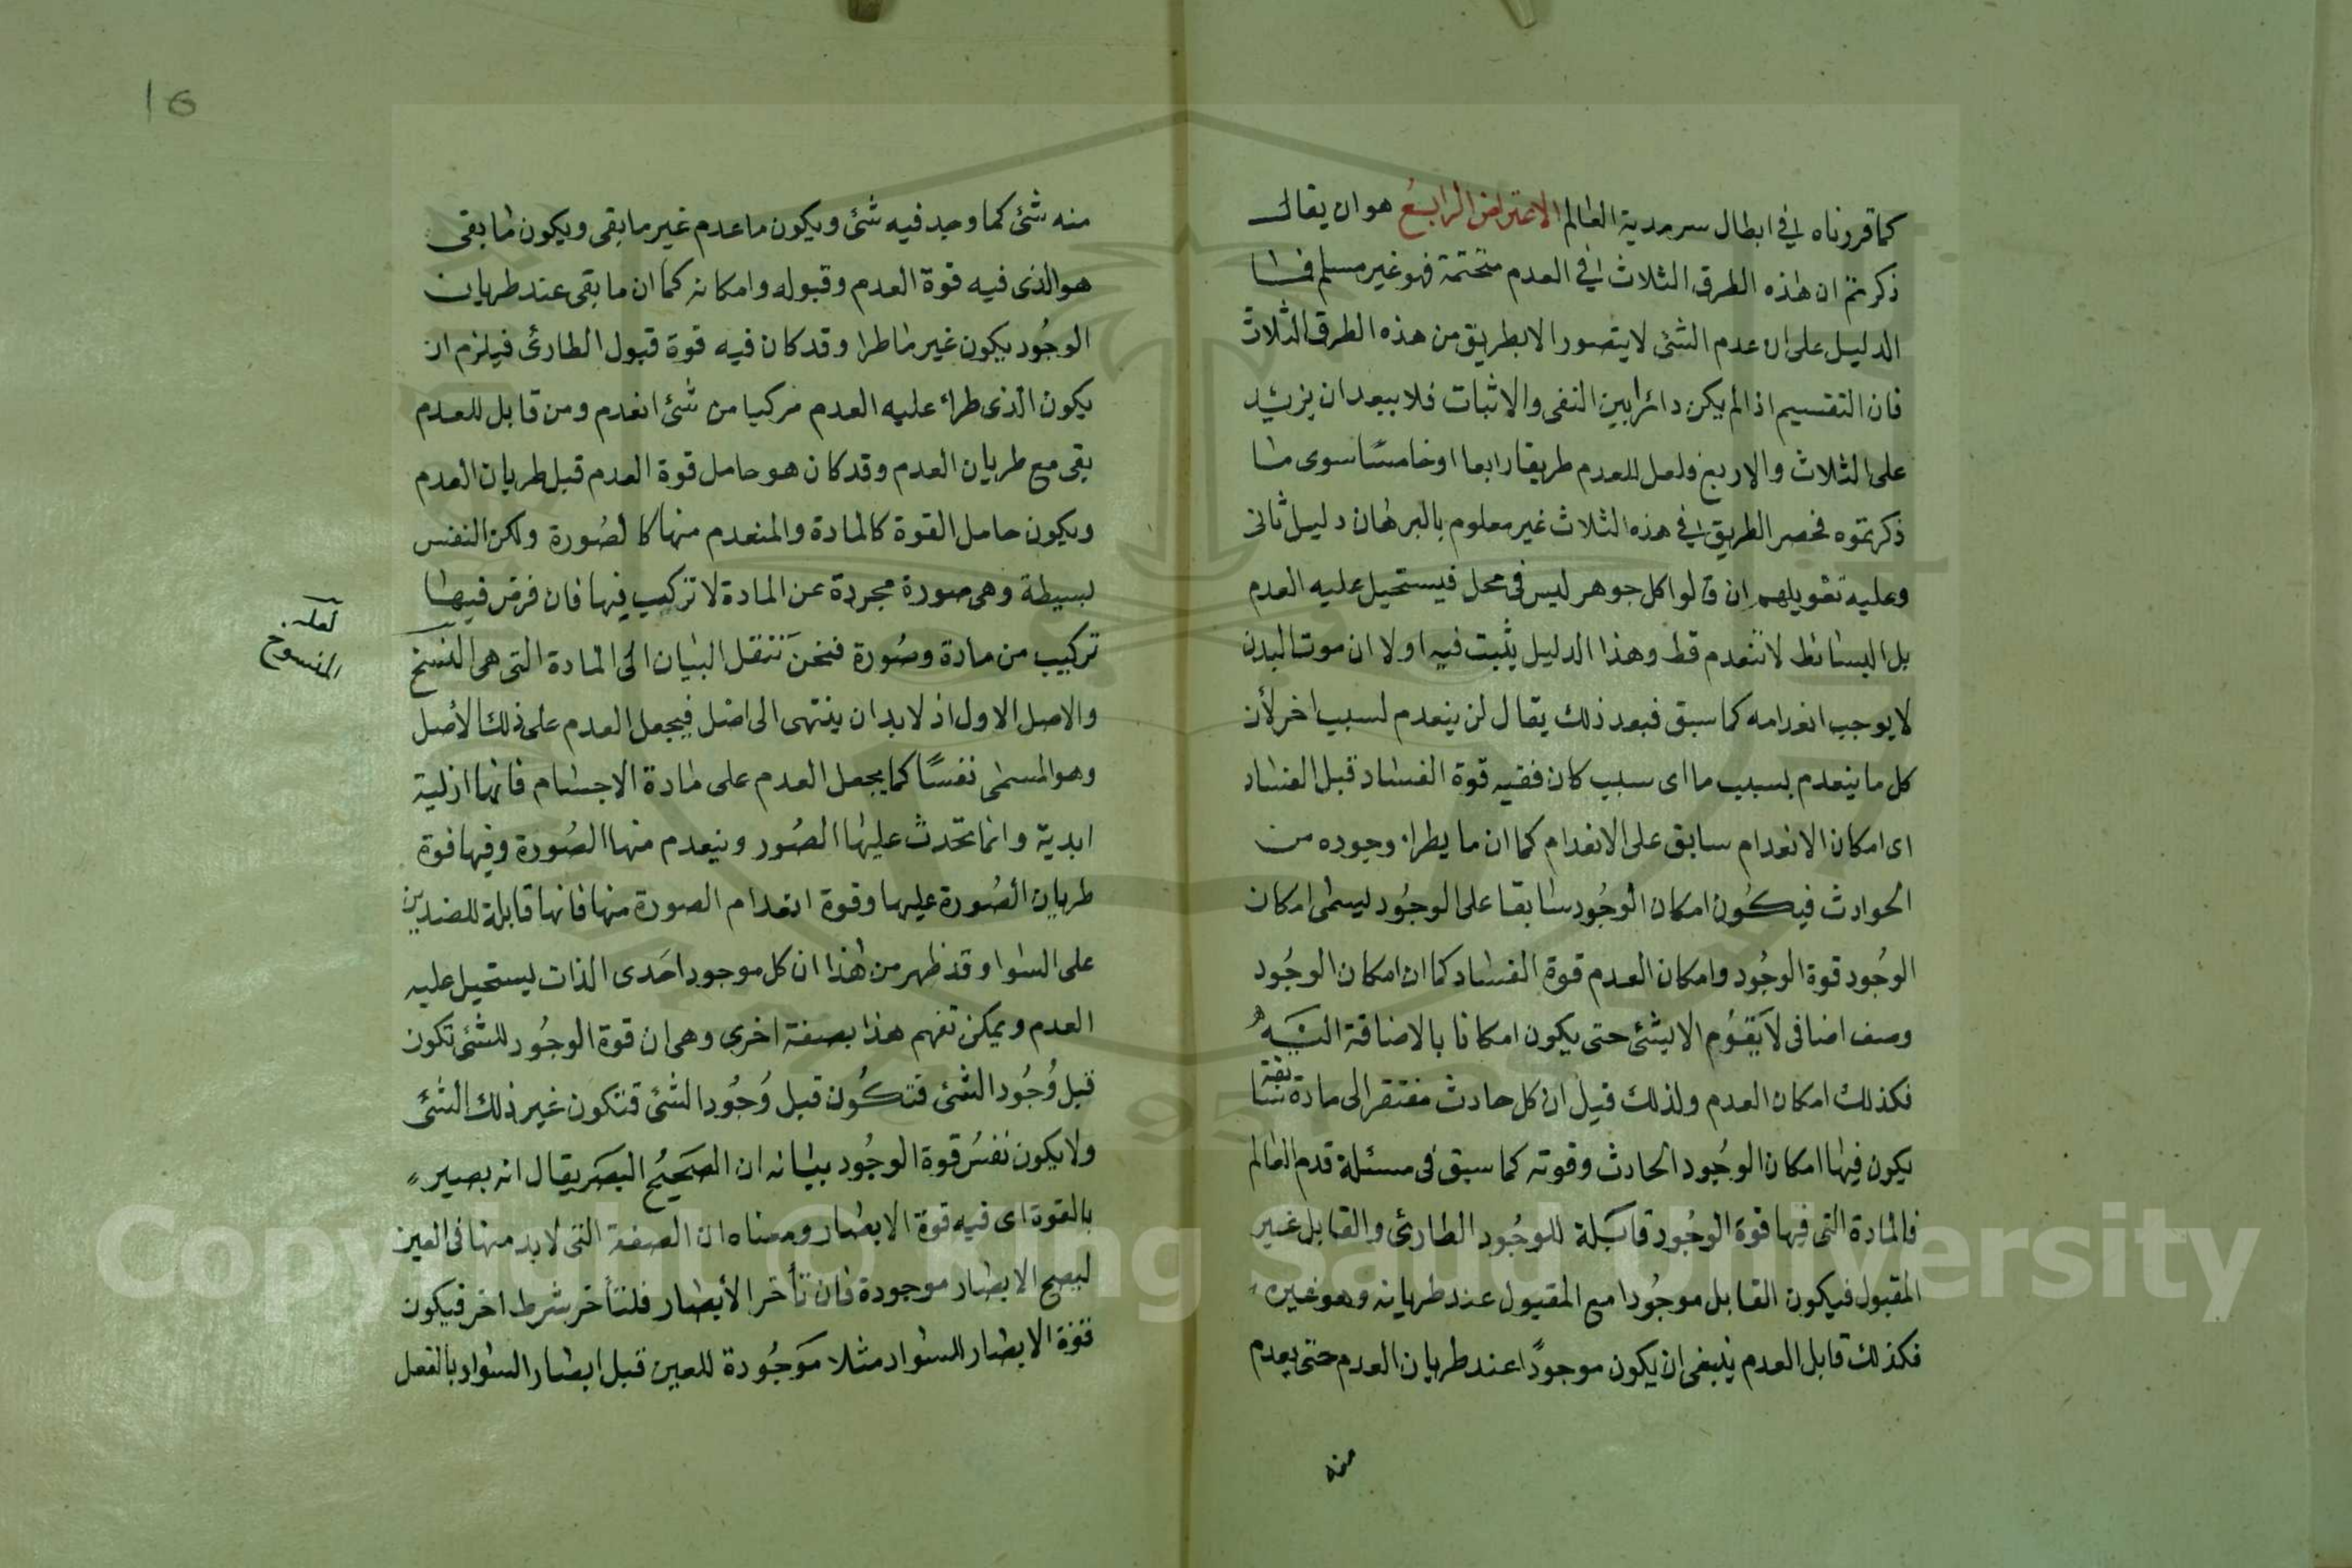 كما قررناه في ابطال سرمدية العالم الاعتراض الرابع هو ان يقال
ذكرتم ان هذه الطرق الثلاث في العدم منحتمة فهو غير مسلم فما
الدليل على ان عدم الشئ لا يتصور الا بطريق من هذه الطرق الثلاث
فان التقسيم اذا لم يكن دائرا بين النفى والاثبات فلا يبعد ان يزيد
على الثلاث والاربع ولعل للعدم طريقا رابعا او خامسًا سوى ما
ذكرتموه فحصر الطريق في هذه الثلاث غير معلوم بالبرهان دليل ثانى
وعليه تقويلهم ان قالوا كل جوهر ليس فى محل فيستحيل عليه العدم
بل البسائط لا تنعدم قط وهذا الدليل يثبت فيه اولا ان موت البدن
لا يوجب انعدامه كما سبق فبعد ذلك يقال لن ينعدم لسبب اخر لأن
كل ما ينعدم بسبب ما اى سبب كان ففيه قوة الفساد قبل الفساد
اى امكان الانعدام سابق على الانعدام كما ان ما يطراء وجوده من
الحوادث فيكون امكان الوجُود سابقا على الوجُود ليسمى امكان
الوجُود قوة الوجُود وامكان العدم قوة الفساد كما ان امكان الوجُود
وصف اضافى لا يَقوُم الا بشئ حتى يكون امكانا بالاضافة اليه
فكذلك امكان العدم ولذلك قيل ان كل حادث مفتقر الى مادة سابقة
يكون فيها امكان الوجُود الحادث وقوته كما سبق فى مسئلة قدم العالم
فالمادة التى فيها قوة الوجُود قابلة للوجُود الطارئ والقابل غير
المقبول فيكون القابل موجُودا مع المقبول عند طريانه وهو غيره
فكذلك قابل العدم ينبغى ان يكون موجودًا عند طريان العدم حتى يعدم
منه
16
منه شئ كما وجد فيه شئ ويكون ما عدم غير ما بقى ويكون ما بقى
هو الذى فيه قوة العدم وقبوله وامكانه كما ان ما بقى عند طريان
الوجُود يكون غير ما طرا وقد كان فيه قوة قبول الطارئ فيلزم ان
يكون الذى طراء عليه العدم مركبا من شئ انعدم ومن قابل للعدم
بقى مع طريان العدم وقد كان هو حامل قوة العدم قبل طريان العدم
ويكون حامل القوة كالمادة والمنعدم منها كالصُورة ولكن النفس
بسيطة وهى صورة مجردة عن المادة لا تركيب فيها فان فرض فيها
تركيب من مادة وصُورة فنحن ننقل البيان الى المادة التى هى النسخ
لعله
المنسوخ
والاصل الاول اذ لا بد ان ينتهى الى اصل فيجعل العدم على ذلك الأصل
وهو المسمى نفسًا كما يجعل العدم على مادة الاجسام فانها ازلية
ابدية وانما تحدث عليها الصُور وينعدم منها الصُورة وفيها قوة
طريان الصُورة عليها وقوة انعدام الصورة منها فانها قابلة للضدين
على السوا وقد ظهر من هذا ان كل موجود احَدى الذات ليستحيل عليه
العدم ويمكن تفهم هذا بصفة اخرى وهى ان قوة الوجُود للشئ تكون
قبل وُجُود الشئ فتكُون قبل وُجُود الشئ فتكون غير ذلك الشئ
ولا يكون نفسُ قوة الوجُود بيانه ان الصَحيحُ البَصَر يقال انه بصير
بالقوة اى فيه قوة الابصار ومعناه ان الصفة التى لا بد منها فى العين
ليصح الابصار موجودة فان تأخر الأبصار فلتأخر شرط اخر فيكون
قوة الابصار للسواد مثلا مَوجُودة للعين قبل ابصار السواد بالفعل